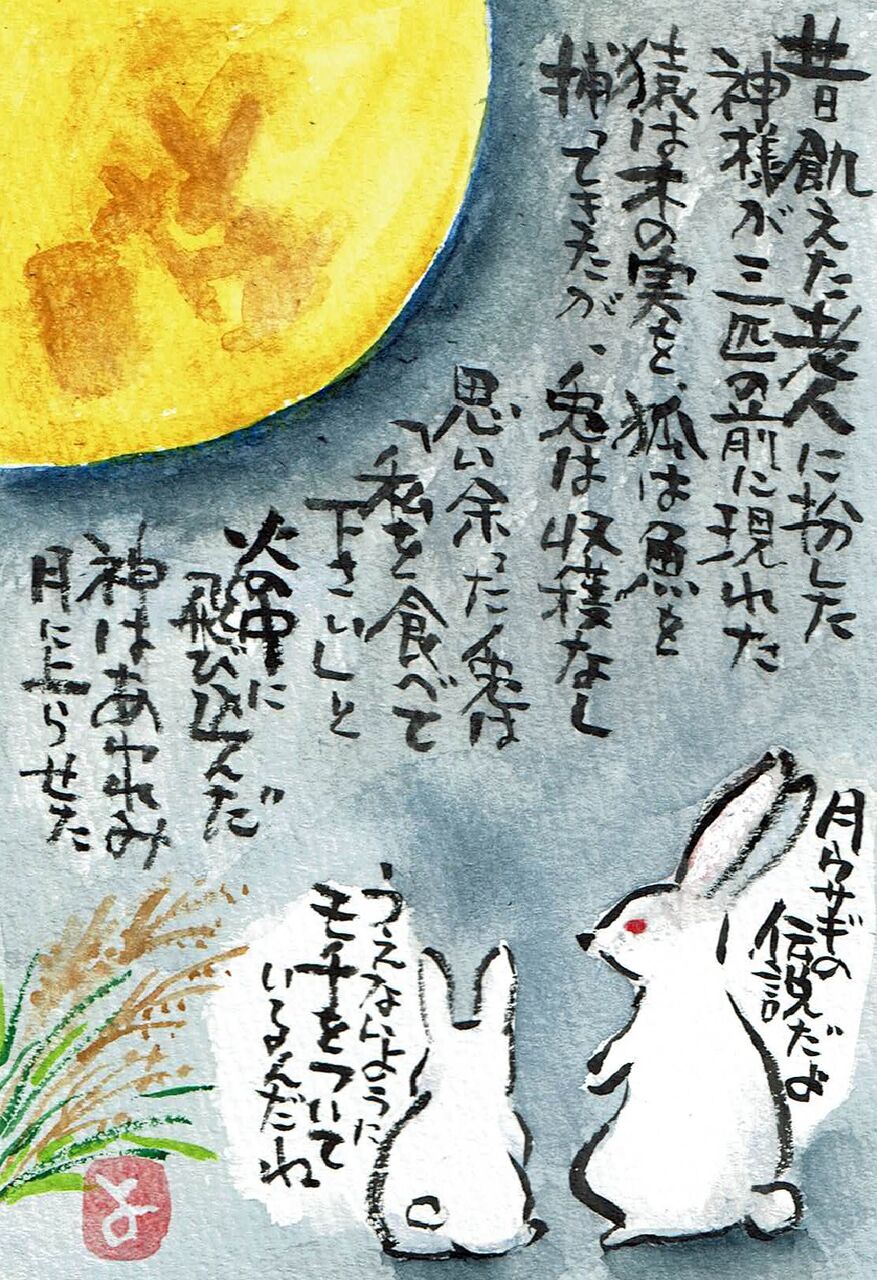 昔飢えた老人に扮した
神様が三匹の前に現れた
猿は木の実を、狐は魚を
捕ってきたが、兎は収穫なし
思い余った兎は
「私を食べて
下さい」と
火の中に
飛び込んだ
神はあわれみ
月に上らせた
月ウサギの
伝説だよ
うえないように
モチをついて
いるんだね
よ